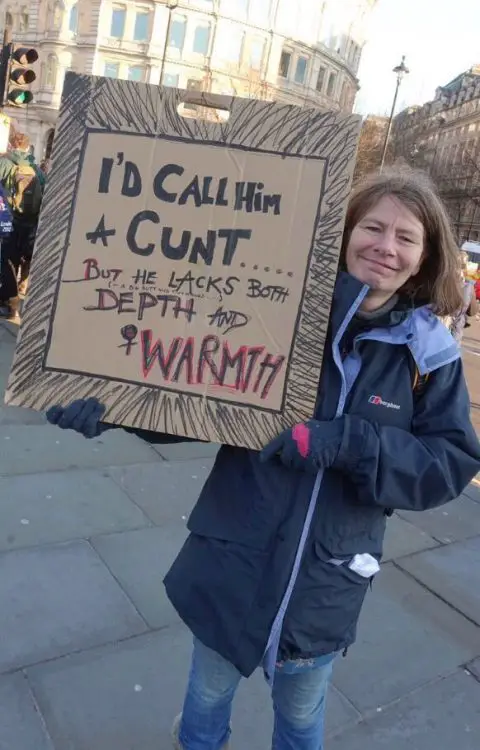 I'D CALL HIM
A CUNT.....
BUT HE LACKS BOTH
DEPTH AND
WARMTH
berghaus